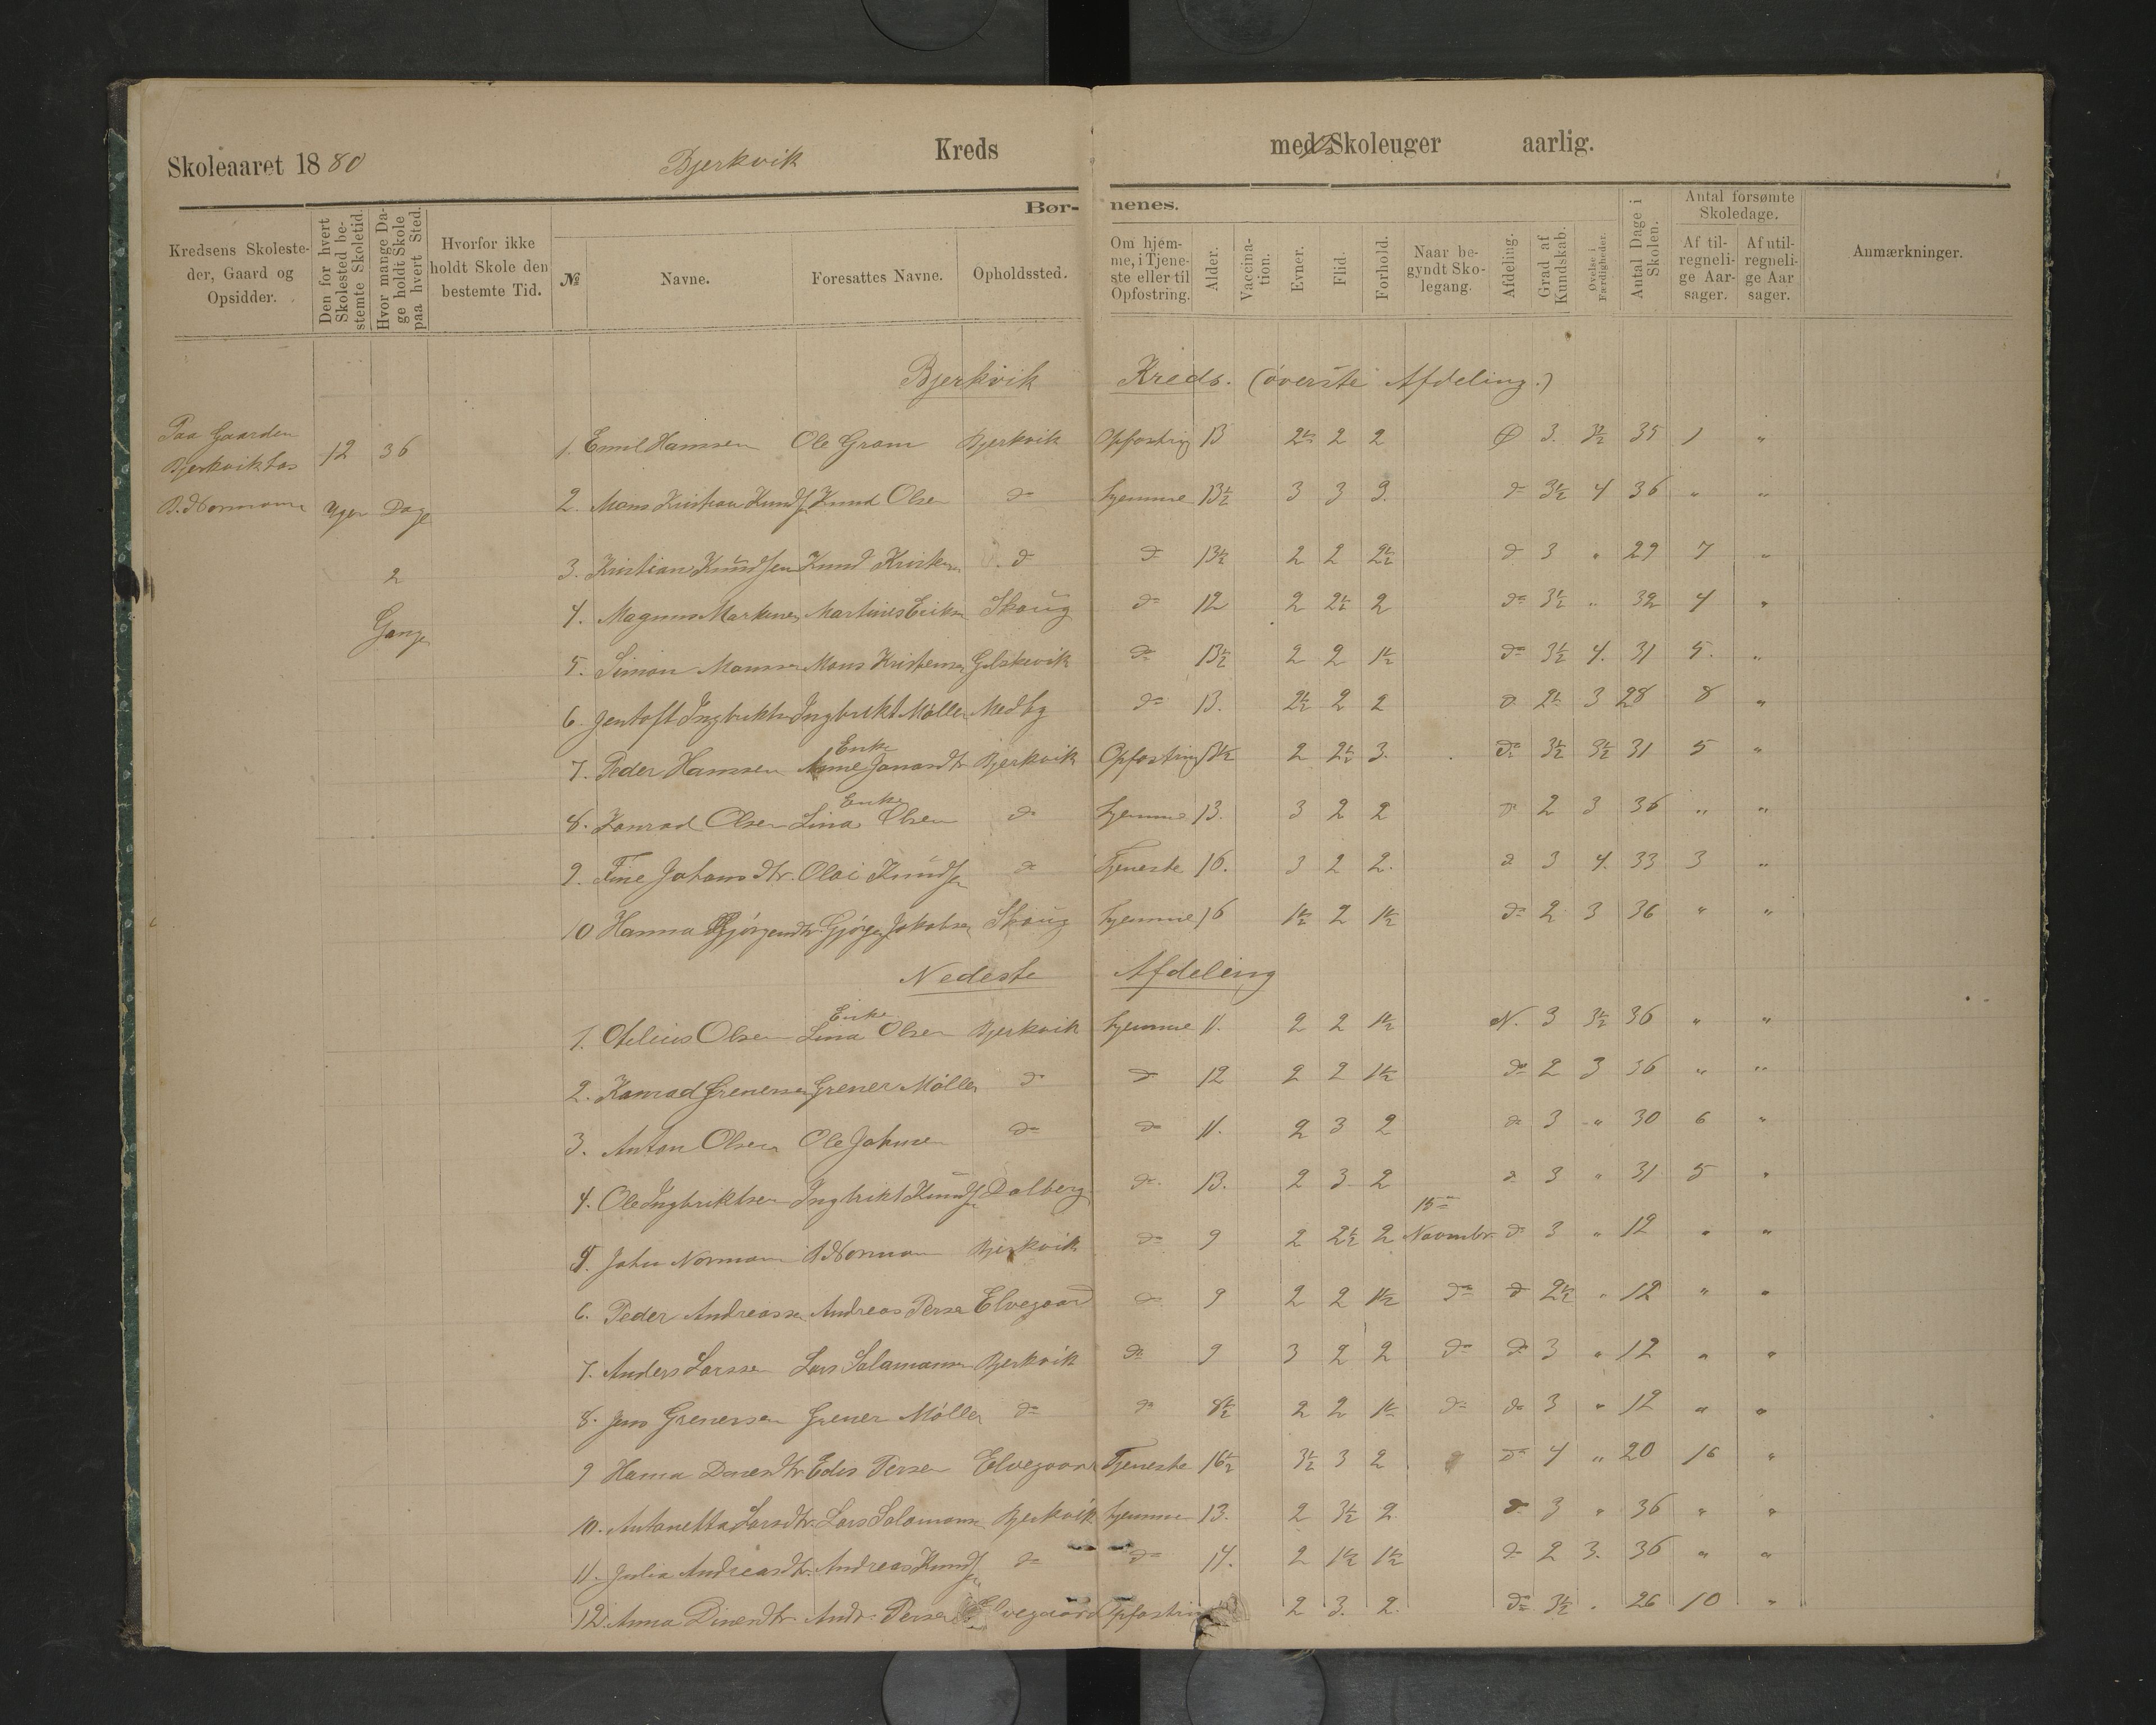 Skoleaaret 1880 Bjerkvik Kreds med 12 Skoleuger aarlig.
Børnenes.
Kredsens Skolesteder, Gaard og Opsidder.
Den for hvert Skolested bestemte Skoletid.
Hvor mange Dage holdt Skole paa hvert Sted.
Hvorfor ikke holdt Skole den bestemte Tid.
№
Navne.
Foresattes Navne.
Opholdssted.
Om hjemme, i Tjeneste eller til Opfostring.
Alder.
Vaccination.
Evner.
Flid.
Forhold.
Naar begyndt Skolegang.
Afdeling.
Grad af Kundskab.
Øvelse i Færdigheder.
Antal Dage i Skolen.
Antal forsømte Skoledage.
Af tilregnelige Aarsager.
Af utilregnelige Aarsager.
Anmærkninger.
Bjerkvik Kreds. (øverste Afdeling.)
Paa Gaarden
Bjerkvik hos
B. Normann
12 Uger
36 Dage
2
Gange
1. Emil Hansen Ole Gram Bjerkvik Opfostrig 13 2½ 2 2 Ø 3. 3½ 35 1 "
2. Mons Kristian Knuds. Knud Olsen do hjemme 13½ 3 3 3. do 3½ 4 36 " "
3. Kristian Knudsen Knud Kristens. do do 13½ 2 2 2½ do 3 " 29 7 "
4. Magnus Martines Martines Eriks. Skoug do 12 2 2½ 2 do 3½ " 32 4 "
5. Simon Monssen Mons Kristensen Gilskevik do 13½ 2 2 1½ do 3½ 4. 31 5. "
6. Jentoft Ingbrikts. Ingbrikt Møller Medby do 13. 2½ 2 2 do 2½ 3 28 8 "
7. Peder Hansen Enke Anne Jonasdtr Bjerkvik Opfostring 13½ 2 2½ 3. do 3½ 3½ 31 5 "
8. Konrad Olsen Enke Lina Olsen do hjemme 13. 3 2 2 do 2 3 36 " "
9. Fine Johansdtr. Olai Knuds. do Tjeneste 16. 3 2 2. do 3 4. 33 3 "
10 Hanna Gjørgensdtr. Gjørgen Jakobsen Skoug hjemme 16 1½ 2 1½ do 2 3 36 " "
Nedeste Afdeling
1. Olsen Enke Lina Olsen Bjerkvik hjemme 11. 2 2 1½ N. 3 3½ 36 " "
2. Konrad Grenersen Grener Møller do do 12 2 2 1½ do 2 3 36 " "
3. Anton Olsen Ole Johnsen do do 11. 2 3 2 do 3 " 30 6 "
4. Ole Ingbriktsen Ingbrikt Knuds. Dalberg do 13. 2 3 2 do 3 " 31 5 "
5. John Normann B Normann Bjerkvik do 9 2 2½ 2 15de Novembr. do 3 " 12 " "
6. Peder Andreassen Andreas Persen Elvegaard do 9 2 2 1½ do do 2½ " 12 " "
7. Anders Larssen Lars Salamonsen Bjerkvik do 9 3 2 2 do do 3 " 12 " "
8. Jens Grenersen Grener Møller do do 8½ 2 2 1½ do do 3 " 12 " "
9 Hanna Persen Elvegaard Tjeneste 16½ 3½ 3 2 do 4 " 20 16 "
10. Antonetta Larsdtr. Lars Salomonsen Bjerkvik hjemme 13. 2 3½ 2 do 3 " 36 " "
11. Julia Andreasdtr. Andreas Knuds. do do 14. 2 1½ 1½ do 2 3. 36 " "
12. Anna Andr. Persen Elvegaard Opfostring 2 3. 2. do 3½ " 26 10 "